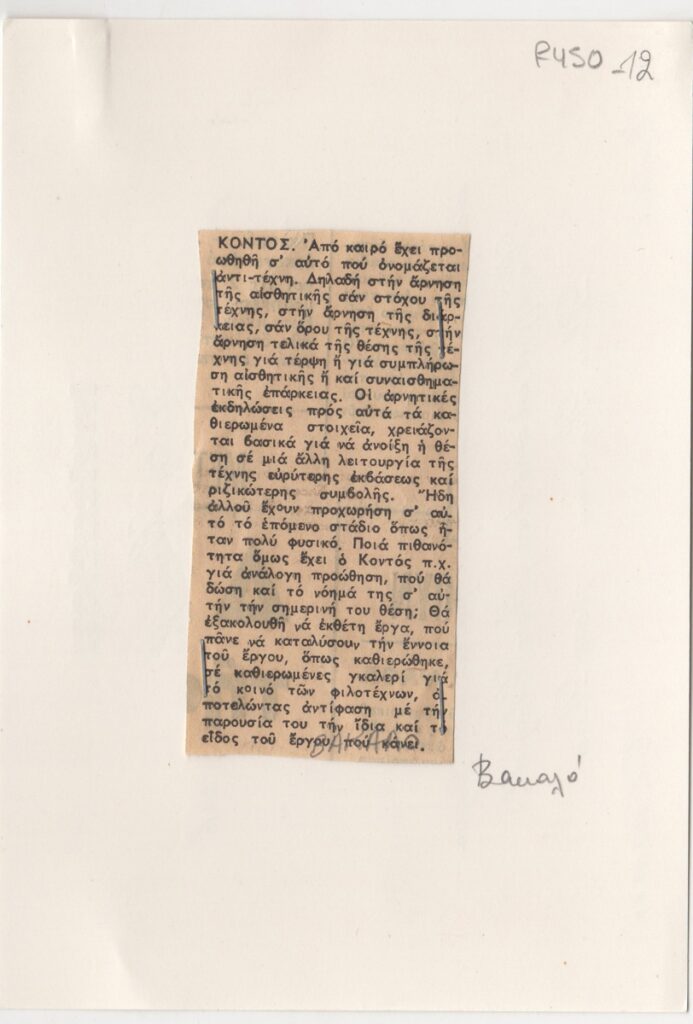 P450-12
ΚΟΝΤΟΣ. Ἀπό καιρό ἔχει προ-
ωθηθῆ σ' αὐτό πού ὀνομάζεται
ἀντι-τέχνη. Δηλαδή στήν ἄρνηση
τῆς αἰσθητικῆς σάν στόχου τῆς
τέχνης, στήν ἄρνηση τῆς διαρ-
κειας, σάν ὅρου τῆς τέχνης, στήν
ἄρνηση τελικά τῆς θέσης τῆς τέ-
χνης γιά τέρψη ἤ γιά συμπλήρω-
ση αἰσθητικῆς ἤ καί συναισθημα-
τικῆς ἐπάρκειας. Οἱ ἀρνητικές
ἐκδηλώσεις πρός αὐτά τά κα-
θιερωμένα στοιχεῖα, χρειάζον-
ται βασικά γιά νά ἀνοίξη ἡ θέ-
ση σέ μιά ἄλλη λειτουργία τῆς
τέχνης εὐρύτερης ἐκβάσεως καί
ριζικώτερης συμβολῆς. Ἤδη
ἀλλοῦ ἔχουν προχωρήση σ' αὐ-
τό τό ἑπόμενο στάδιο ὅπως ἦ-
ταν πολύ φυσικό. Ποιά πιθανό-
τητα ὅμως ἔχει ὁ Κοντός π.χ.
γιά ἀνάλογη προώθηση, πού θά
δώση καί τό νόημά της σ' αὐ-
τήν τήν σημερινή του θέση; Θά
ἐξακολουθῆ νά ἐκθέτη ἔργα, πού
πᾶνε νά καταλύσουν τήν ἔννοια
τοῦ ἔργου, ὅπως καθιερώθηκε,
σέ καθιερωμένες γκαλερί γιά
τό κοινό τῶν φιλοτέχνων, ἀ-
ποτελώντας ἀντίφαση μέ τήν
παρουσία του τήν ἴδια καί τό
εἶδος τοῦ ἔργου πού κάνει.
ΒΑΚΑΛΟ
Βακαλό